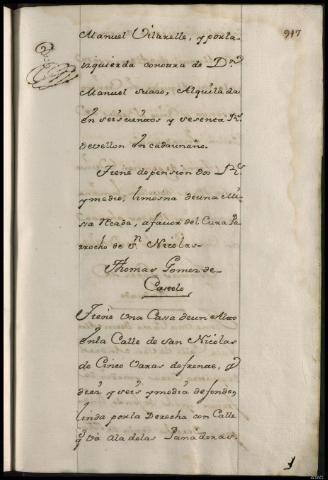 917
Manuel Vilarelle, y por la
izquierda con otra de Dn.
Manuel suazo, Alquilada
en seiscientos y sesenta Rs.
de vellon en cada un año.
Tiene de pension dos Rs.
y medio, limosna de una Mi=
sa Rezada, a favor del Cura Pa
rrocho de Sn. Nicolas.
Thomas Gomez de
Castelo
Tiene una Casa de un Alto
en la Calle de san Nicolas
de Cinco varas de frente, y
diez y seis y media de fondo,
linda por la Derecha con Calle
q. va a la de las Panaderas.